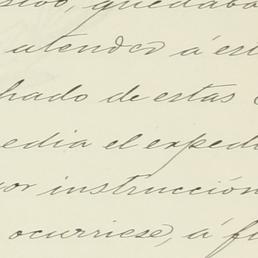 quedaba
atender á est
hado de estas
edia el exped
or instrucción
ocurriese, á f